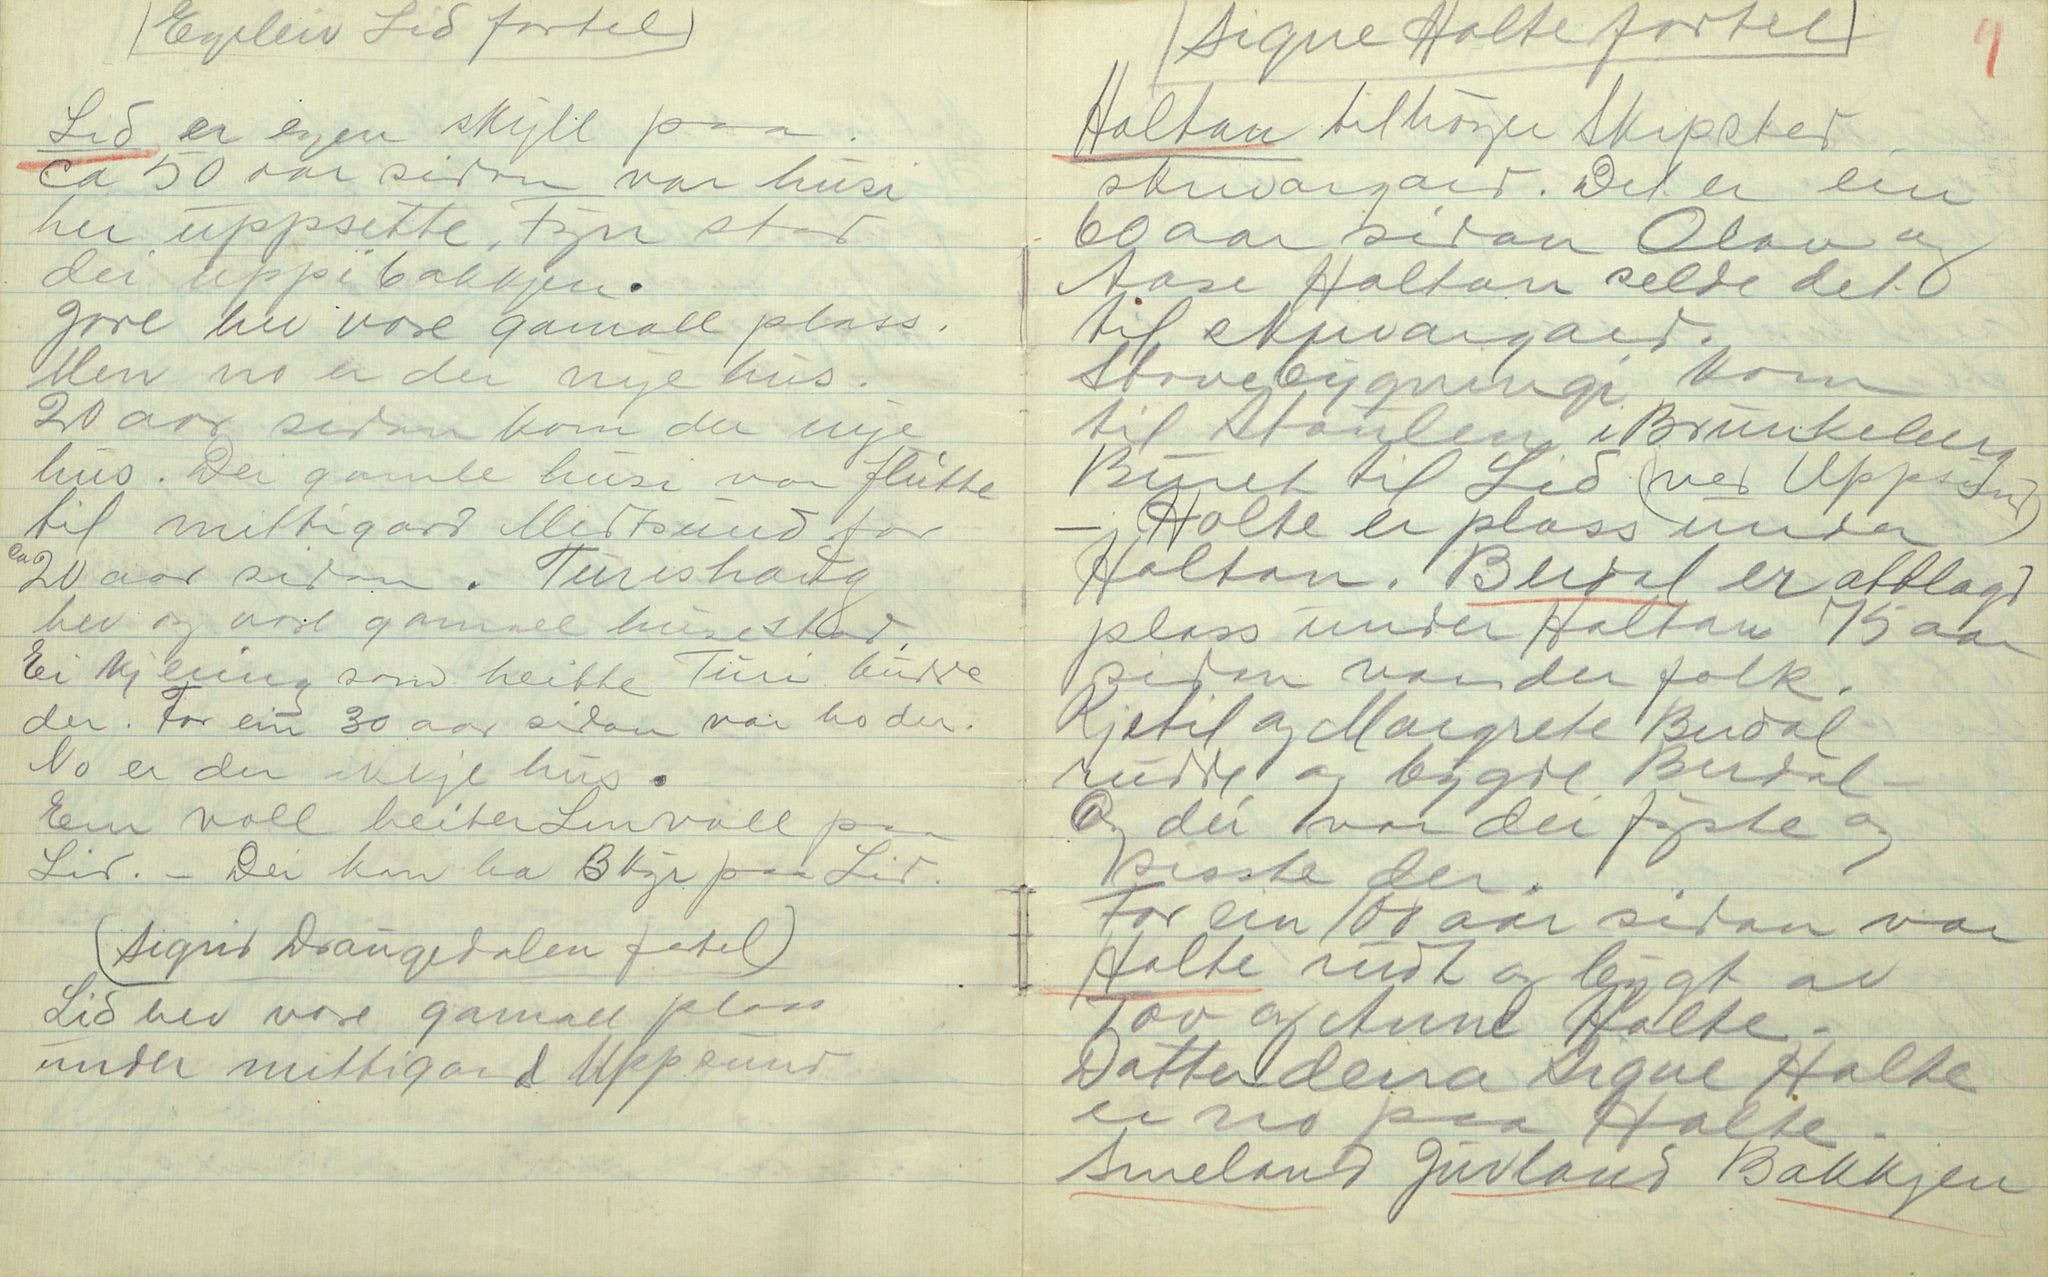 (Eyvleiv Lid fortel)
Lid er egen skyll paa.
ca 50 aar sidan var husi
her uppsette, Fyrr stod
dei uppi bakkjen.
Jore hev vore gamall plass.
Men no er der nye hus.
20 aar sidan kom der nye
hus. Dei gamle husi var flutte
til mittigard Midtsund for
ca 20 aar sidan. Turishaug
hev og vore gamall husestad,
Ei kjering som heitte Turi budde
der. For ein 30 aar sidan var ho der.
No er der ikkje hus.
Ein voll heiter Linvoll paa
Lid. - Dei kan ha 3 kyr paa Lid.
(Sigrid Draugedalen fortel)
Lid hev vore gamall plass
under mittigard Uppsund
(Signe Holte fortel)
9
Holtan tilhøyrer Skipsted
skrivargard. Det er ein
60 aar sidan Olav og
Aase Holtan selde det
til skrivargard.
Stovebygningi kom
til Staulen i Brunkeberg
Buret til Lid (ved Uppsund)
- Holte er plass under
Holtan. Berdal er attlagd
plass under Holtan 75 aar
sidan var der folk.
Kjetil og Margrete Berdal
rudde og bygde Berdal -
Og dei var dei fyste og
sisste der.
For ein 100 aar sidan var
Holte rudt og bygt av
Tov og Anne Holte.
Datter deira Signe Holte
er no paa Holte.
Smeland Juvland Bakkjen